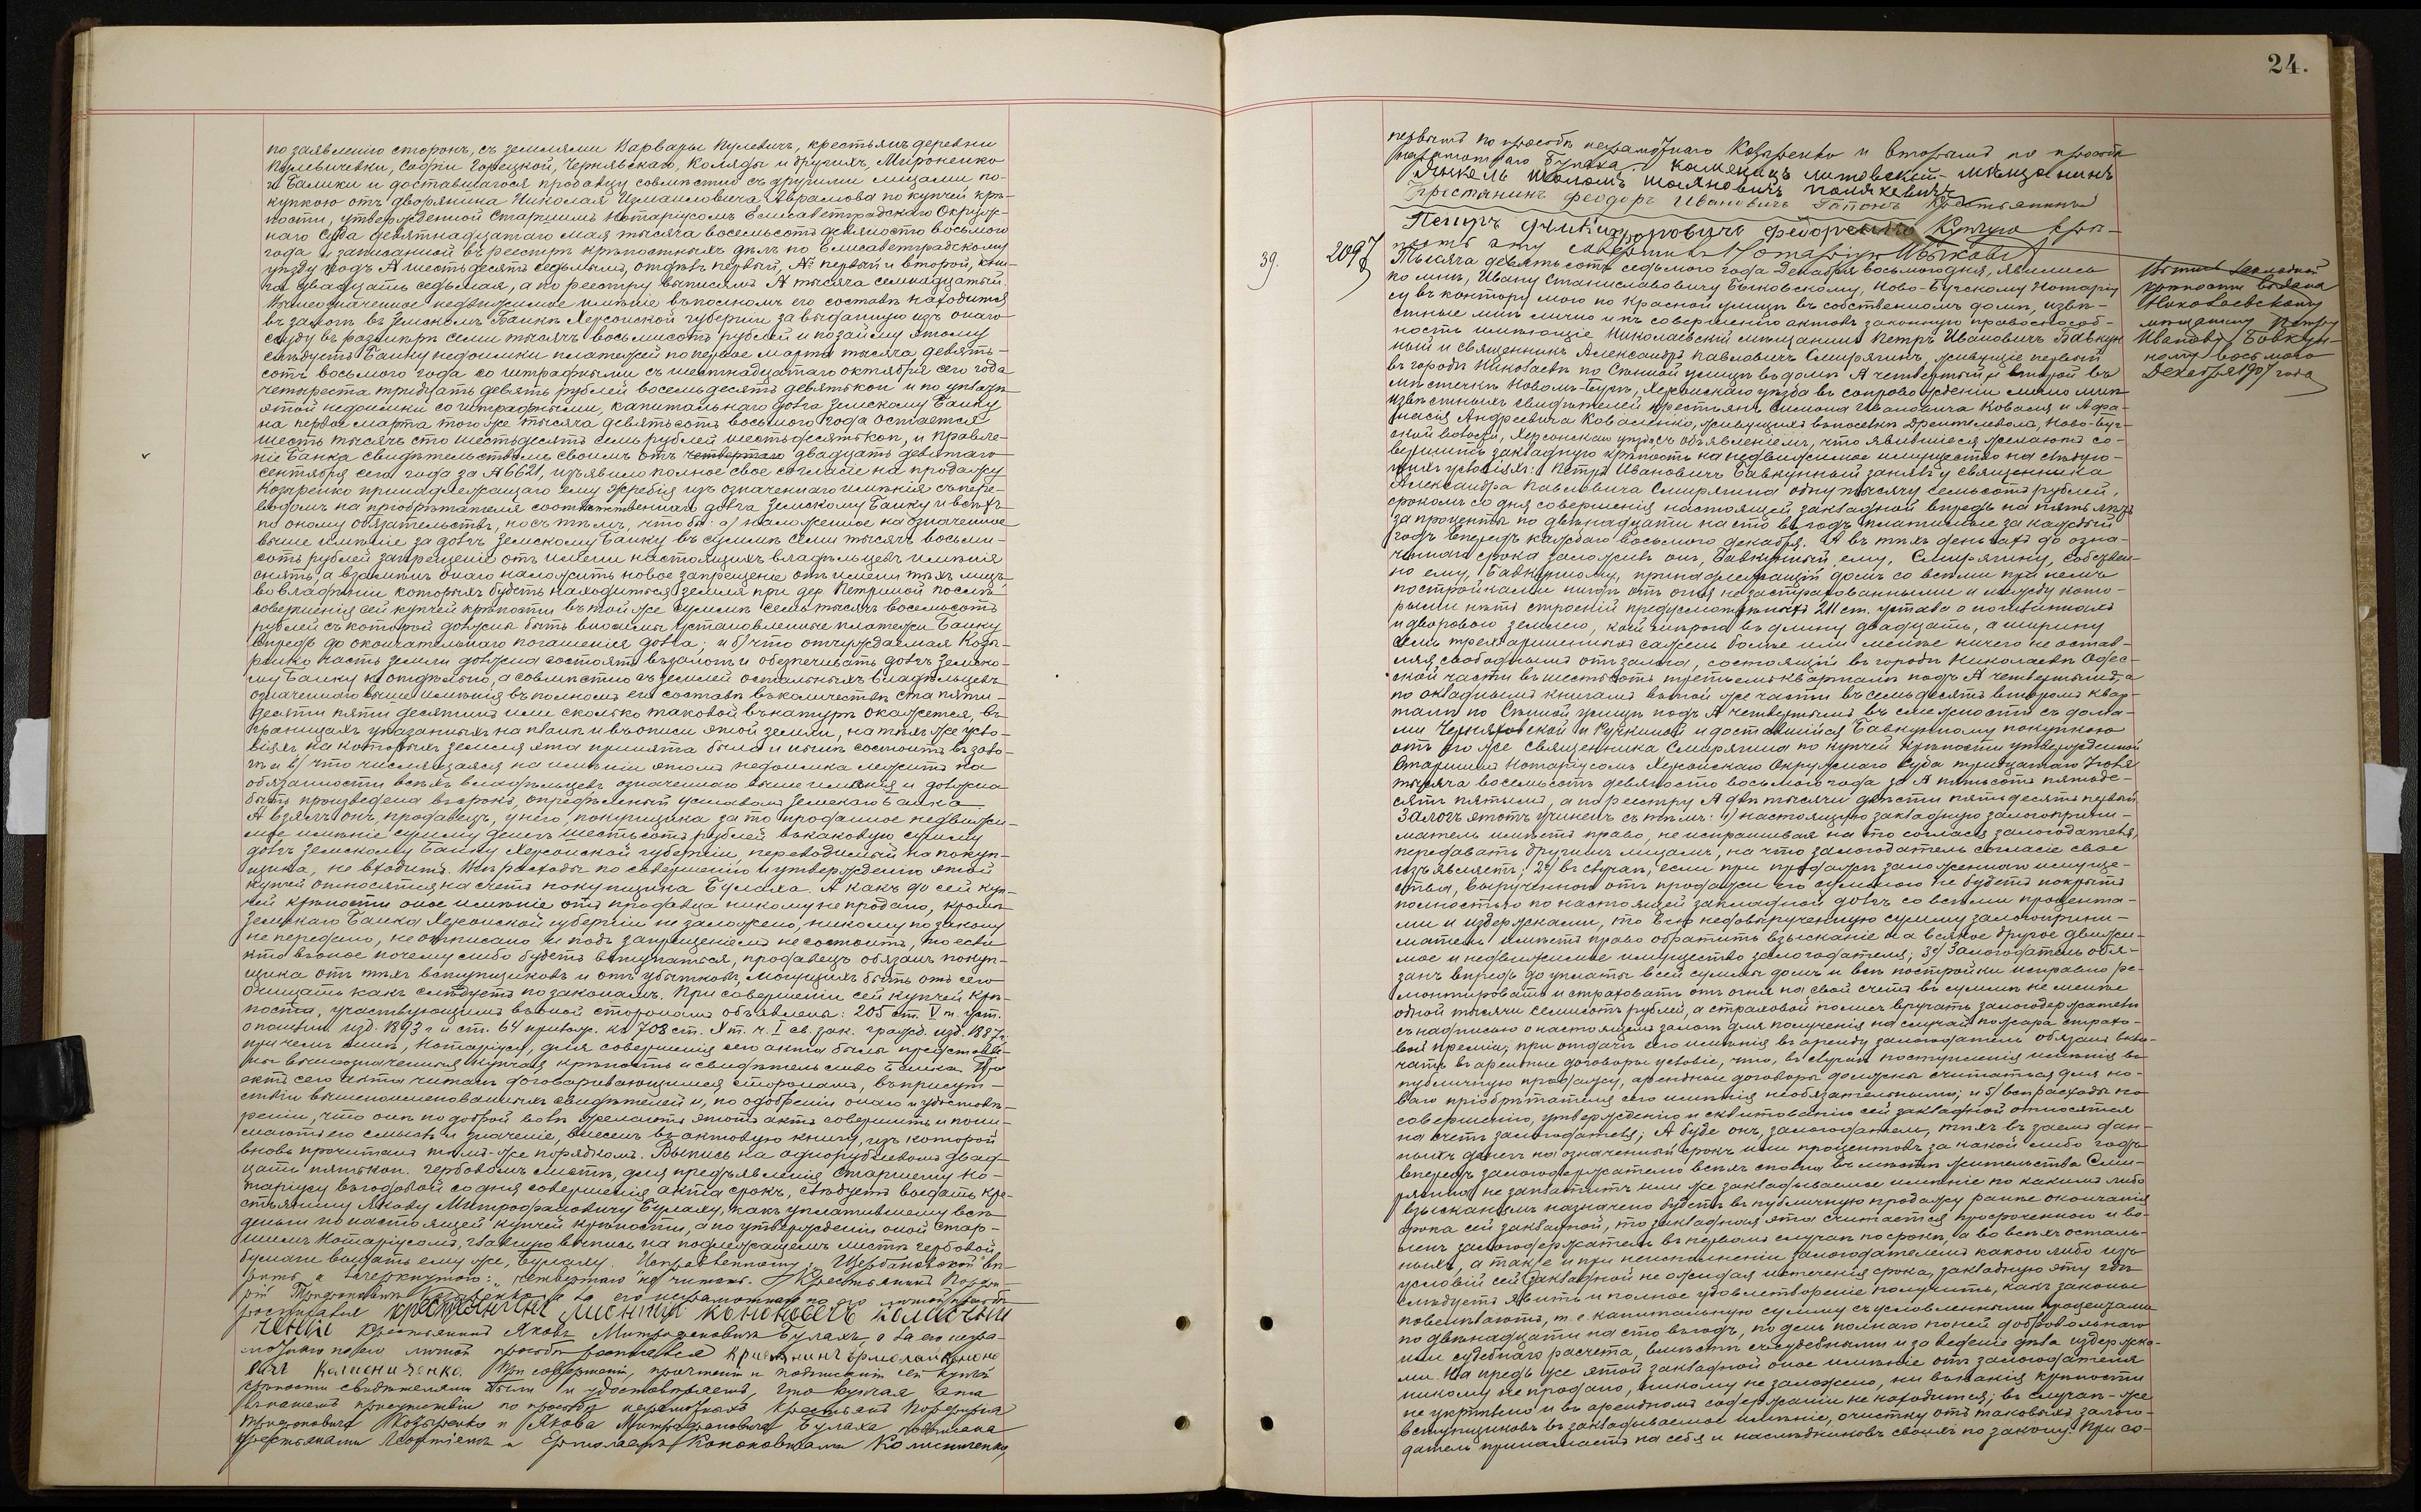 по заявленію сторонъ, съ землями Варвары Кулевичъ, крестьянъ деревни
Кулевичевки, Софіи Горецкой, Чернявскаго, Коляды и другихъ, Мироненко
и Балики и доставшагося продавцу совмѣстно съ другими лицами по-
купкою отъ дворянина Николая Измаиловича Аврамова по купчей крѣ-
пости, утвержденной Старшимъ Нотаріусомъ Елисаветградскаго Окруж-
наго Суда девятнадцатаго мая тысяча восемьсотъ девяносто восьмого
года и записанной въ реестръ крѣпостныхъ дѣлъ по Елисаветградскому
уѣзду подъ № шестьдесятъ седьмымъ, отдѣлъ первый, № первый и второй, кни-
га двадцать седьмая, а по реестру выписей № тысяча семнадцатый.
Вышеозначенное недвижимое имѣніе въ полномъ его составѣ находится
въ залогѣ въ Земскомъ Банкѣ Херсонской губерніи за выданную изъ онаго
ссуду въ размѣрѣ семи тысячъ восьмисотъ рублей и по займу этому
слѣдуетъ Банку недоимки платежей по первое марта тысяча девять-
сотъ восьмого года со штрафными съ шестнадцатаго октября сего года
четыреста тридцать девять рублей восемьдесятъ девять коп. и по уплатѣ
этой недоимки со штрафными, капитальнаго долга Земскому Банку
на первое марта того же тысяча девятьсотъ восьмого года остается
шесть тысячъ сто шестьдесятъ семь рублей шестьдесятъ коп., и Правле-
ніе Банка свидѣтельствомъ своимъ отъ четвертаго двадцать девятаго
сентября сего года за № 6621, изъявило полное свое согласіе на продажу
Козыренко принадлежащаго ему жребія изъ означеннаго имѣнія съ пере-
водомъ на пріобрѣтателя соотвѣтственнаго долга Земскому Банку и всѣхъ
по оному обязательствъ, но съ тѣмъ, чтобы: а) наложенное на означенное
выше имѣніе за долгъ Земскому Банку въ суммѣ семи тысячъ восьми-
сотъ рублей запрещеніе отъ имени настоящихъ владѣльцевъ имѣнія
снять, а взамѣнъ онаго наложить новое запрещеніе отъ имени тѣхъ лицъ
во владѣніи которыхъ будетъ находиться земля при дер. Петриной послѣ
совершенія сей купчей крѣпости въ той же суммѣ семь тысячъ восемьсотъ
рублей съ которой должны быть вносимы установленные платежи Банку
впредь до окончательнаго погашенія долга, и б) что отчуждаемая Козы-
ренко часть земли должна состоять въ залогѣ и обезпечивать долгъ Земско-
му Банку не отдѣльно, а совмѣстно съ землей остальныхъ владѣльцевъ
означеннаго выше имѣнія въ полномъ его составѣ въ количествѣ ста пяти-
десяти пяти десятинъ или сколько таковой въ натурѣ окажется, въ
границахъ указанныхъ на планѣ и въ описи этой земли, на тѣхъ же усло-
віяхъ на которыхъ земля эта принята была и нынѣ состоитъ въ зало-
гѣ и в) что числящаяся на имѣніи этомъ недоимка лежитъ на
обязанности всѣхъ владѣльцевъ означеннаго выше имѣнія и должна
быть произведена въ срокъ, опредѣленный уставомъ Земскаго Банка.
А взялъ онъ, продавецъ, у него, покупщика за то проданное недвижи-
мое имѣніе сумму денегъ шестьсотъ рублей въ каковую сумму
долгъ Земскому Банку Херсонской губерніи, переводимый на покуп-
щика, не входитъ. Всѣ расходы по совершенію и утвержденію этой
купчей относятся на счетъ покупщика Булаха. А какъ до сей куп-
чей крѣпости оное имѣніе отъ продавца никому не продано, кромѣ
Земскаго Банка Херсонской губерніи не заложено, никому по закону
не передано, не отписано и подъ запрещеніемъ не состоитъ, то если
кто въ оное почему либо будетъ вступаться, продавецъ обязанъ покуп-
щика отъ тѣхъ вступщиковъ и отъ убытковъ, могущихъ быть отъ сего
очищать какъ слѣдуетъ по законамъ. При совершеніи сей купчей крѣ-
пости, участвующимъ въ оной сторонамъ объявлены: 205 ст. V т. уст.
о пошлин. изд. 1893 г. и ст. 64 прилож. къ 708 ст. X т. ч. I св. зак. гражд. изд. 1887 г.
при чемъ мнѣ, Нотаріусу, для совершенія сего акта были представле-
ны вышеозначенныя купчая крѣпость и свидѣтельство Банка. Про-
эктъ сего акта читанъ договаривающимся сторонамъ, въ присут-
ствіи вышепоименованныхъ свидѣтелей и, по одобреніи онаго и удостовѣ-
реніи, что они по доброй волѣ желаютъ этотъ актъ совершить и пони-
маютъ его смыслъ и значеніе, внесенъ въ актовую книгу, изъ которой
вновь прочитанъ тѣмъ-же порядкомъ. Выпись на однорублевомъ двад-
цать пять коп. гербовомъ листѣ, для предъявленія Старшему Но-
таріусу въ годовой со дня совершенія акта срокъ, слѣдуетъ выдать кре-
стьянину Якову Митрофановичу Булаху, какъ уплатившему всѣ
деньги по настоящей купчей крѣпости, а по утвержденіи оной Стар-
шимъ Нотаріусомъ, главную выпись на подлежащемъ листѣ гербовой
бумаги выдать ему же, Булаху. Исправленному: „Щербановской" вѣ-
рить, а зачеркнутаго: „четвертаго" не читать. Крестьянинъ Порфи-
рій Трифоновичъ Козыренко, а за его неграмотнаго по его личной просьбѣ
росписался крестьянинъ Леонтій Кононовичъ Колисни-
ченко Крестьянинъ Яковъ Митрофановичъ Булахъ, а за его негра-
мотнаго по его личной просьбѣ росписался крестянинъ Ермолай Кононо
вичъ Калениченко. При совершеніи, прочтеніи и подписаніи сей купчей
крѣпости свидѣтелями были и удостовѣряемъ, что купчая эта
въ нашемъ присутствіи по просьбѣ неграмотныхъ крестьянъ Порфирія
Трифоновича Козыренко и Якова Митрофановича Булаха подписана
крестьянами Леонтіемъ и Ермолаемъ Кононовичами Колисниченко,
24.
первымъ по просьбѣ неграмотнаго Козыренко и вторымъ по просьбѣ
неграмотнаго Булаха.
Крестянинъ Феодоръ Ивановичъ Гапонъ Крестьянинъ
Купчую крѣ-
пость эту совершилъ Нотаріусъ И Быковскій
39.
2097
Тысяча девятьсотъ седьмого года Декабря восьмого дня, явились
ко мнѣ, Ивану Станиславовичу Быковскому, Ново-Бугскому Нотаріу
су въ контору мою по Красной улицѣ въ собственномъ домѣ, извѣ-
стные мнѣ лично и къ совершенію актовъ законную правоспособ-
ность имѣющіе Николаевскій мѣщанинъ Петръ Ивановичъ Бавкун
ный и священникъ Александръ Павловичъ Смирягинъ, живущіе первый
въ городѣ Николаевѣ по Сѣнной улицѣ въ домѣ № четвертый и второй въ
мѣстечкѣ Новомъ-Бугѣ, Херсонскаго уѣзда въ сопровожденіи лично мнѣ
извѣстныхъ свидѣтелей крестьянъ Симона Ивановича Коваля и Афа-
насія Андреевича Коваленко, живущихъ въ поселкѣ, Ново-Буг-
ской волости, Херсонскаго уѣзда съ объявленіемъ, что явившіеся желаютъ со-
вершить закладную крѣпость на недвижимое имущество на слѣдую-
щихъ условіяхъ: Петръ Ивановичъ Бавкунный занялъ у священника
Александра Павловича Смирягина одну тысячу семьсотъ рублей,
срокомъ со дня совершенія настоящей закладной впредь на пять лѣтъ
за проценты по двѣнадцати на сто въ годъ платимые за каждый
годъ впередъ каждаго восьмого декабря. А въ тѣхъ деньгахъ до озна-
ченнаго срока заложилъ онъ, Бавкунный ему, Смирягину, собствен-
но ему, Бавкунному, принадлежащій домъ со всѣми при немъ
постройками нигдѣ отъ огня не застрахованными и между кото-
рыми нѣтъ строеній предусмотрѣнныхъ 211 ст. устава о пошлинахъ
и дворовою землею, коей мѣрою въ длину двадцать, а ширину
семь трехаршинныхъ сажень болѣе или менѣе ничего не остав-
ляя, свободнымъ отъ залога, состоящій въ городѣ Николаевѣ Одес-
ской части въ шестьсотъ третьемъ кварталѣ подъ № четвертымъ, а
по окладнымъ книгамъ въ той же части въ семьдесятъ второмъ квар-
талѣ по Сѣнной улицѣ подъ № четвертымъ въ смежности съ дома-
ми Черняховской и Ручкиной и доставшійся Бавкунному покупкою
отъ его же священника Смирягина по купчей крѣпости утвержденной
Старшимъ Нотаріусомъ Херсонскаго Окружнаго Суда тридцатаго Іюня
тысяча восемьсотъ девяносто восьмого года за № пятьсотъ пятьде-
сятъ пятымъ, а по реестру № двѣ тысячи двѣсти пятьдесятъ первый.
Залогъ этотъ учиненъ съ тѣмъ: 1) настоящую закладную залогоприни-
матель имѣетъ право, не испрашивая на то согласія залогодателя,
передавать другимъ лицамъ, на что залогодатель согласіе свое
изъявляетъ; 2) въ случаѣ, если при продажѣ заложеннаго имуще-
ства, вырученною отъ продажи его суммою не будетъ покрытъ
полностью по настоящей закладной долгъ со всѣми процента-
ми и издержками, то всю недовырученную сумму залогоприни-
матель имѣетъ право обратить взысканіе на всякое другое движи-
мое и недвижимое имущество залогодателя; 3) Залогодатель обя-
занъ впредь до уплаты всей суммы домъ и всѣ постройки исправно ре-
монтировать и страховать отъ огня на свой счетъ въ суммѣ не менѣе
одной тысячи семисотъ рублей, а страховой полисъ вручать залогодержателю
съ надписью о настоящемъ залогѣ для полученія на случай пожара страхо-
вой преміи; при отдачѣ сего имѣнія въ аренду залогодатель обязанъ вклю-
чать въ арендные договоры условіе, что, въ случаѣ поступленія имѣнія въ
публичную продажу, арендные договоры должны считаться для но-
ваго пріобрѣтателя сего имѣнія необязательными; и 5) всѣ расходы по
совершенію, утвержденію и сквитованію сей закладной относятся
на счетъ залогодателя; А буде онъ, залогодатель, тѣхъ въ заемъ дан-
ныхъ денегъ на означенный срокъ или процентовъ за какой либо годъ
впередъ залогодержателю всѣхъ сполна въ мѣстѣ жительства Сми-
рягина не заплатитъ или же закладываемое имѣніе по какимъ либо
взысканіямъ назначено будетъ въ публичную продажу ранѣе окончанія
срока сей закладной, то закладная эта считается просроченною и во-
ленъ залогодержатель въ первомъ случаѣ по срокѣ, а во всѣхъ осталь-
ныхъ, а также и при неисполненіи залогодателемъ какого либо изъ
условій сей закладной не ожидая истеченія срока, закладную эту гдѣ
слѣдуетъ явить и полное удовлетвореніе получить, какъ законы
повелѣваютъ, т. е. капитальную сумму съ условленными процентами
по двѣнадцати на сто въ годъ, по день полнаго по ней добровольнаго
или судебнаго расчета, вмѣстѣ съ судебными и за веденіе дѣла издержка-
ми. На предь же этой закладной оное имѣніе отъ залогодателя
никому не продано, никому не заложено, ни въ какія крѣпости
не укрѣплено и въ арендномъ содержаніи не находится; въ случаѣ-же
вступщиковъ въ закладываемое имѣніе, очистку отъ таковыхъ залого-
датель принимаетъ на себя и наслѣдниковъ своихъ по закону. При со-
Выпись закладной
крѣпости выдана
Николаевскому
мѣщанину Петру
Иванову Бавкун-
ному восьмого
Декабря 1907 года